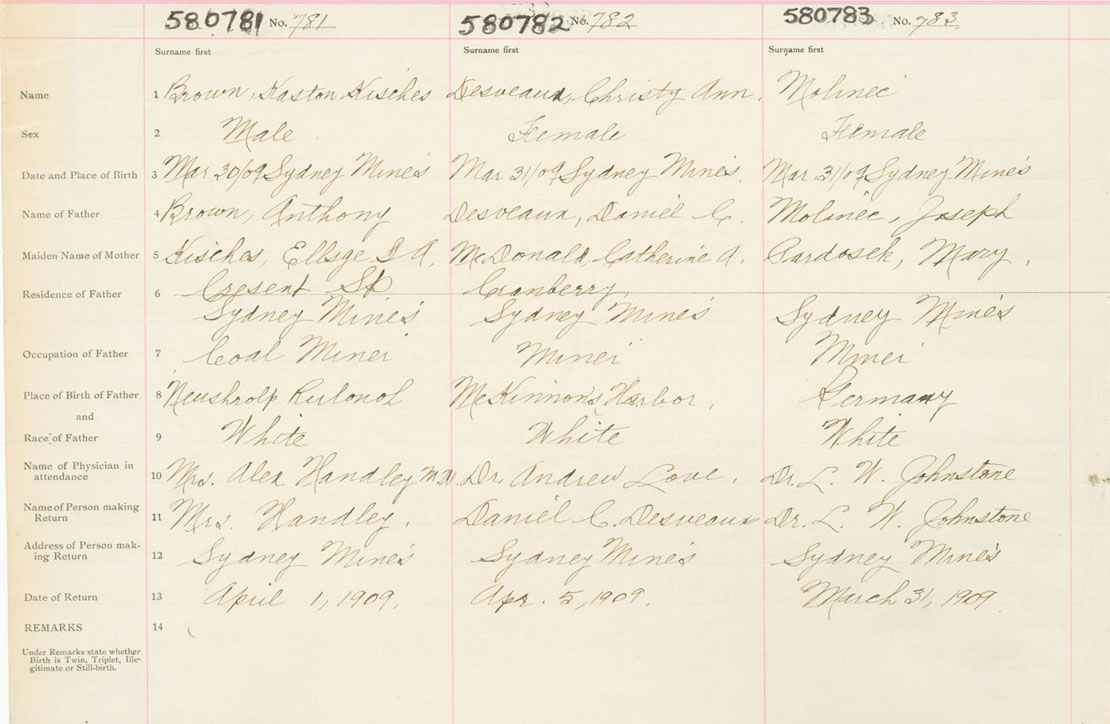 580781 No. 781 580782 No. 782 580783 No. 783
Surname first Surname first Surname first
Name 1 Brown, Kaston Kisches Desveaux, Christy Ann. Molinec
Sex 2 Male Female Female
Date and Place of Birth 3 Mar 30/09 Sydney Mines Mar 31/09 Sydney Mines. Mar 31/09 Sydney Mines
Name of Father 4 Brown, Anthony Desveaux, Daniel C. Molinec, Joseph
Maiden Name of Mother 5 Kisches, A. McDonald, Catherine A. Pardosek, Mary.
Residence of Father 6 Cresent St Cranberry
Sydney Mines Sydney Mines Sydney Mines
Occupation of Father 7 Coal Miner Miner Miner
Place of Birth of Father 8 McKinnons Harbor. Germany
and
Race of Father 9 White White White
Name of Physician in
attendance 10 Mrs. Alex Handley Dr. Andrew Love. Dr. L. W. Johnstone
Name of Person making
Return 11 Mrs. Handley. Daniel C. Desveaux Dr. L. W. Johnstone
Address of Person mak-
ing Return 12 Sydney Mines Sydney Mines Sydney Mines
Date of Return 13 April 1, 1909. Apr. 5, 1909. March 31, 1909
REMARKS 14
Under Remarks state whether
Birth is Twin, Triplet, Ille-
gitimate or Still-birth.